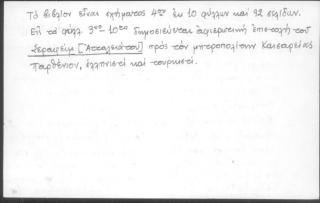 Τὸ βιβλίον εἶναι σχήματος 4ου ἐκ 10 φύλλων καὶ 92 σελίδων.
Εἰς τὰ φύλλ. 3ον-10ον δημοσιεύεται ἀφιερωτικὴ ἐπιστολὴ τοῦ
Σεραφεὶμ [Ἀτταλειάτου] πρὸς τὸν μητροπολίτην Καισαρείας
Παρθένιον, ἑλληνιστὶ καὶ τουρκιστί.